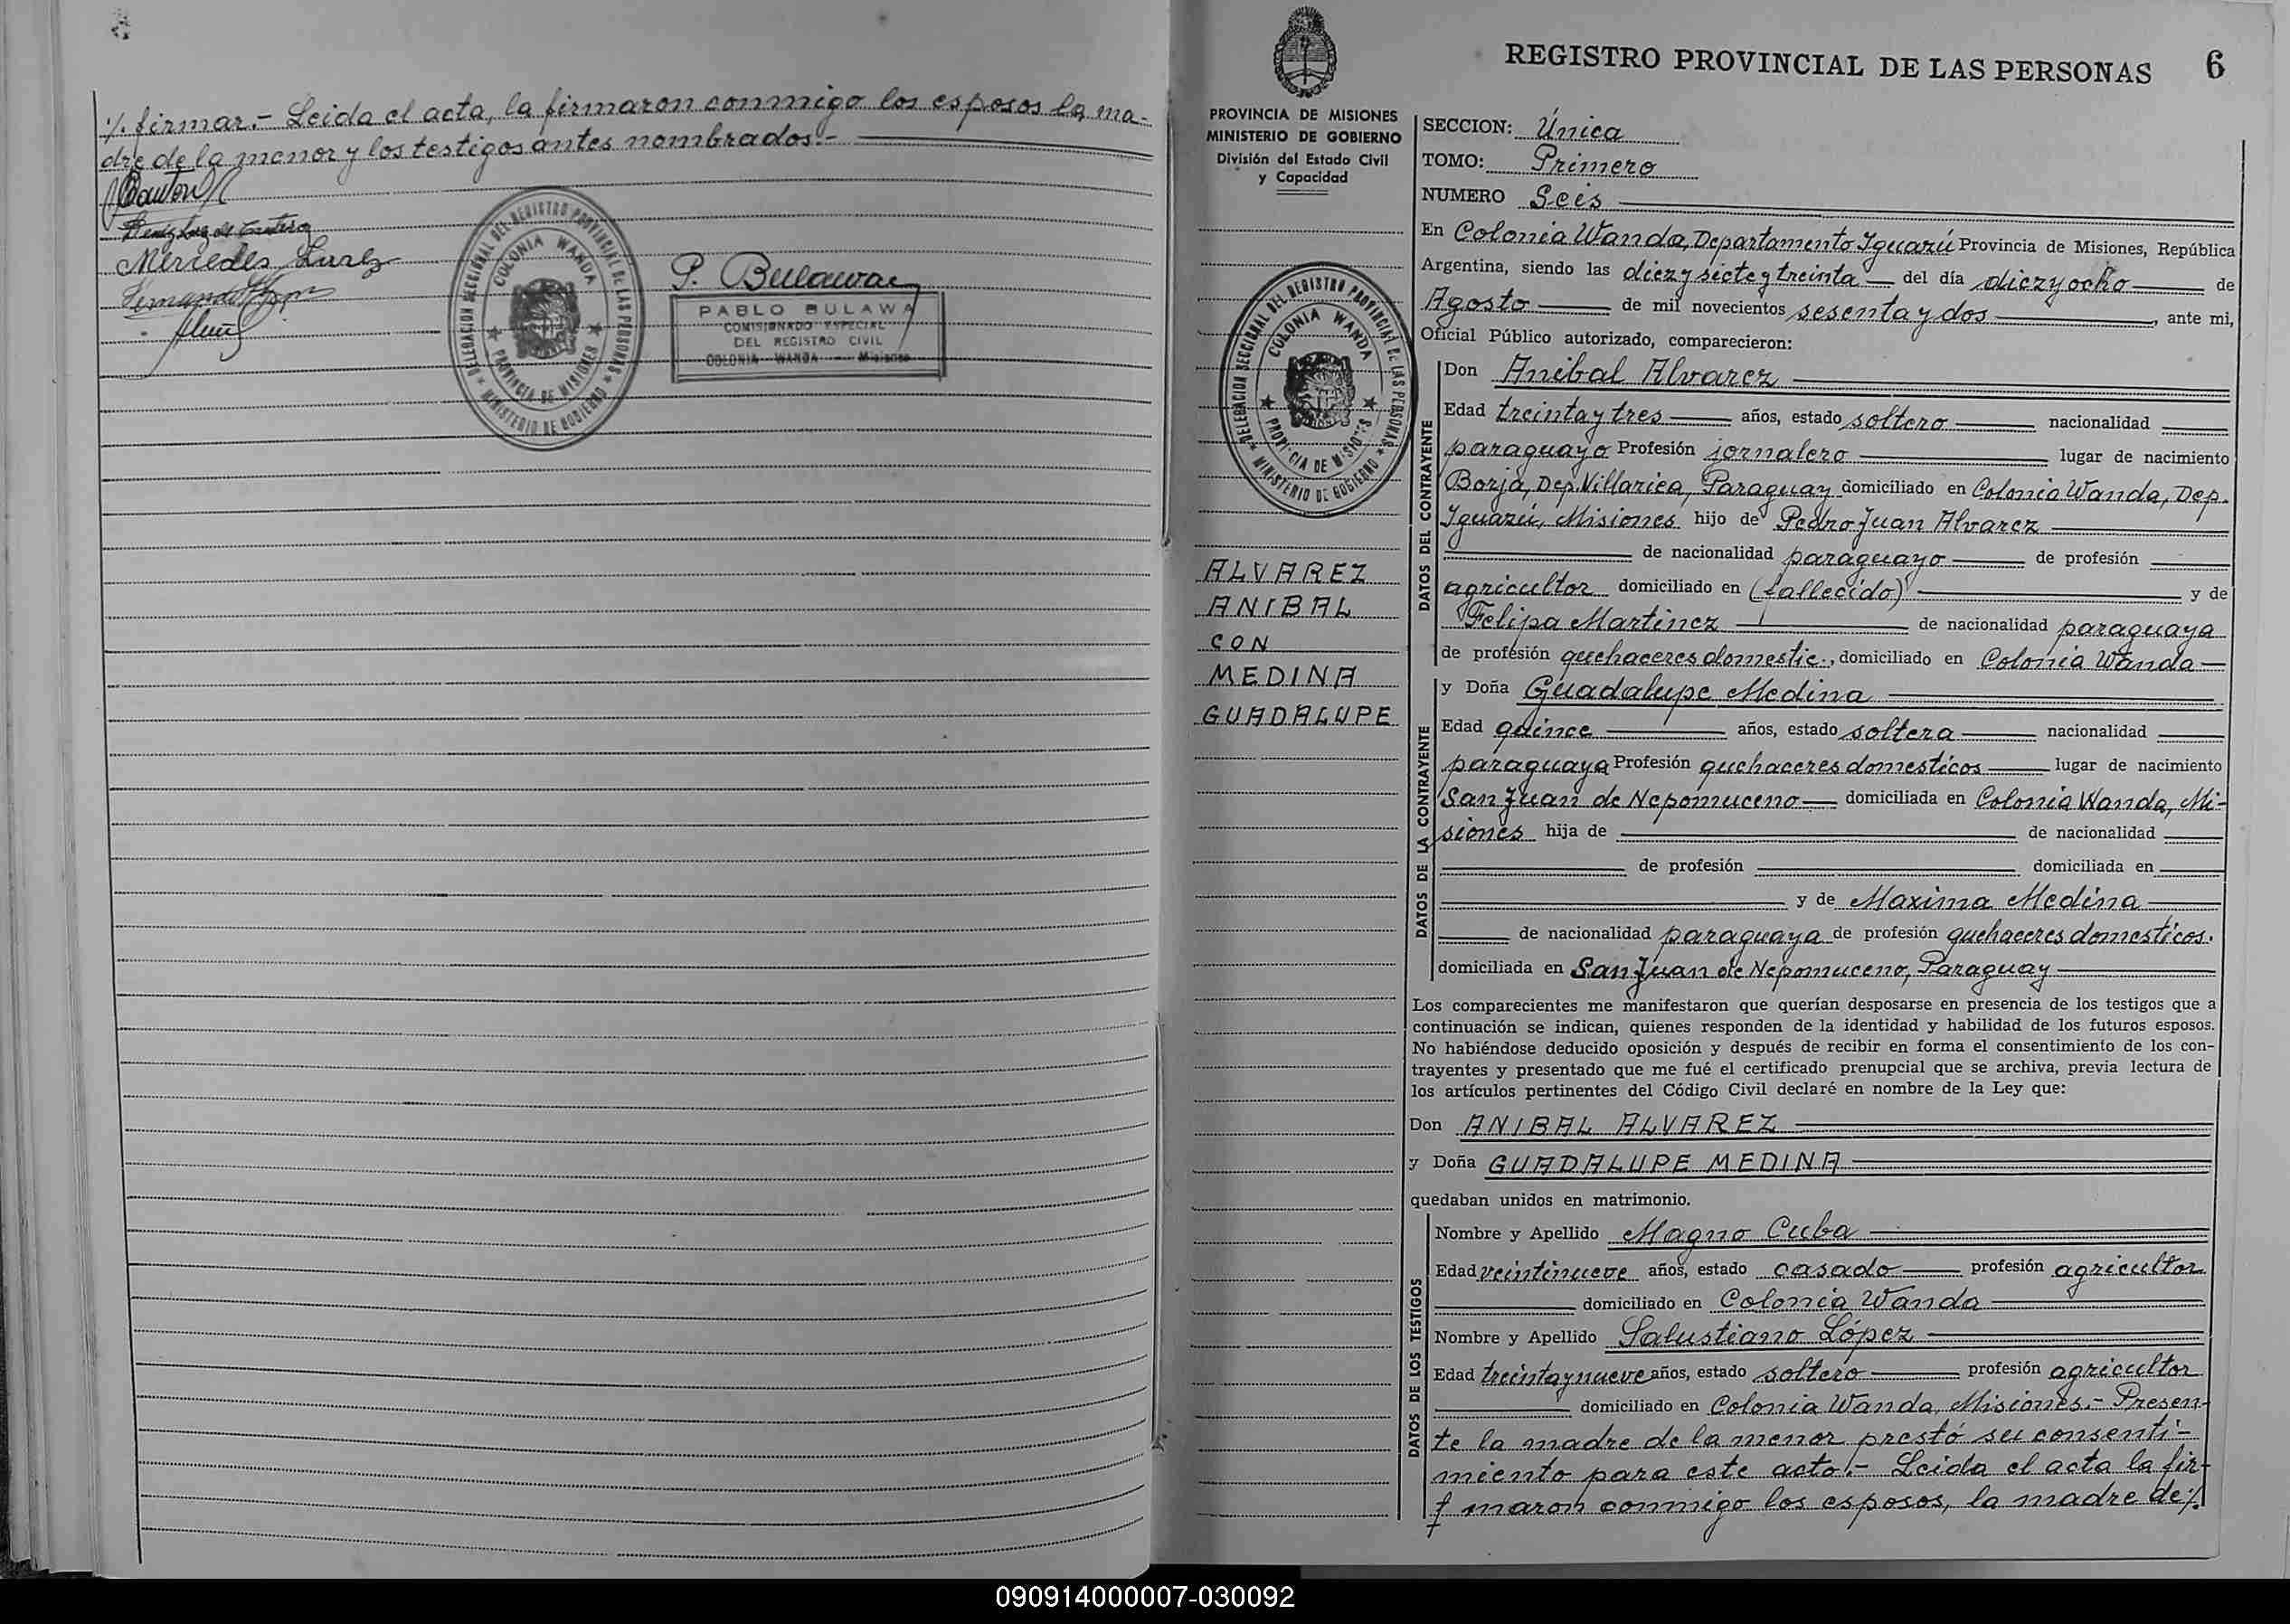 :/. firmar.- Leida el acta, la firmaron conmigo los esposos la ma-
dre de la menor y los testigos antes nombrados.-
Mercedes
P. Bulawa
PABLO BULAWA
COMISIONADO ESPECIAL
DEL REGISTRO CIVIL
COLONIA WANDA - Misiones
DELEGACION SECCIONAL DEL REGISTRO PROVINCIAL DE LAS PERSONAS
COLONIA WANDA
PROVINCIA DE MISIONES
MINISTERIO DE GOBIERNO
REGISTRO PROVINCIAL DE LAS PERSONAS 6
PROVINCIA DE MISIONES
MINISTERIO DE GOBIERNO
División del Estado Civil
y Capacidad
DELEGACION SECCIONAL DEL REGISTRO PROVINCIAL DE LAS PERSONAS
COLONIA WANDA
PROVINCIA DE MISIONES
MINISTERIO DE GOBIERNO
ALVAREZ
ANIBAL
CON
MEDINA
GUADALUPE
SECCION: Única
TOMO: Primero
NUMERO Seis
En Colonia Wanda, Departamento Iguazú Provincia de Misiones, República
Argentina, siendo las diez y siete y treinta del día diez y ocho de
Agosto de mil novecientos sesenta y dos, ante mi,
Oficial Público autorizado, comparecieron:
DATOS DEL CONTRAYENTE
Don Anibal Alvarez
Edad treinta y tres años, estado soltero nacionalidad
paraguayo Profesión jornalero lugar de nacimiento
Borja, Dep. Villarica, Paraguay domiciliado en Colonia Wanda, Dep.
Iguazú, Misiones hijo de Pedro Juan Alvarez
de nacionalidad paraguayo de profesión
agricultor domiciliado en (fallecido) y de
Felipa Martinez de nacionalidad paraguaya
de profesión quehaceres domestic., domiciliado en Colonia Wanda
DATOS DE LA CONTRAYENTE
y Doña Guadalupe Medina
Edad quince años, estado soltera nacionalidad
paraguaya Profesión quehaceres domesticos lugar de nacimiento
San Juan de Nepomuceno domiciliada en Colonia Wanda, Mi-
siones hija de de nacionalidad
de profesión domiciliada en
y de Maxima Medina
de nacionalidad paraguaya de profesión quehaceres domesticos.
domiciliada en San Juan de Nepomuceno, Paraguay
Los comparecientes me manifestaron que querían desposarse en presencia de los testigos que a
continuación se indican, quienes responden de la identidad y habilidad de los futuros esposos.
No habiéndose deducido oposición y después de recibir en forma el consentimiento de los con-
trayentes y presentado que me fué el certificado prenupcial que se archiva, previa lectura de
los artículos pertinentes del Código Civil declaré en nombre de la Ley que:
Don ANIBAL ALVAREZ
y Doña GUADALUPE MEDINA
quedaban unidos en matrimonio.
DATOS DE LOS TESTIGOS
Nombre y Apellido Magno Cuba
Edad veintinueve años, estado casado profesión agricultor
domiciliado en Colonia Wanda
Nombre y Apellido Salustiano López
Edad treinta y nueve años, estado soltero profesión agricultor
domiciliado en Colonia Wanda, Misiones.- Presen-
te la madre de la menor prestó su consenti-
miento para este acto.- Leida el acta la fir-
maron conmigo los esposos, la madre de :/.
090914000007-030092